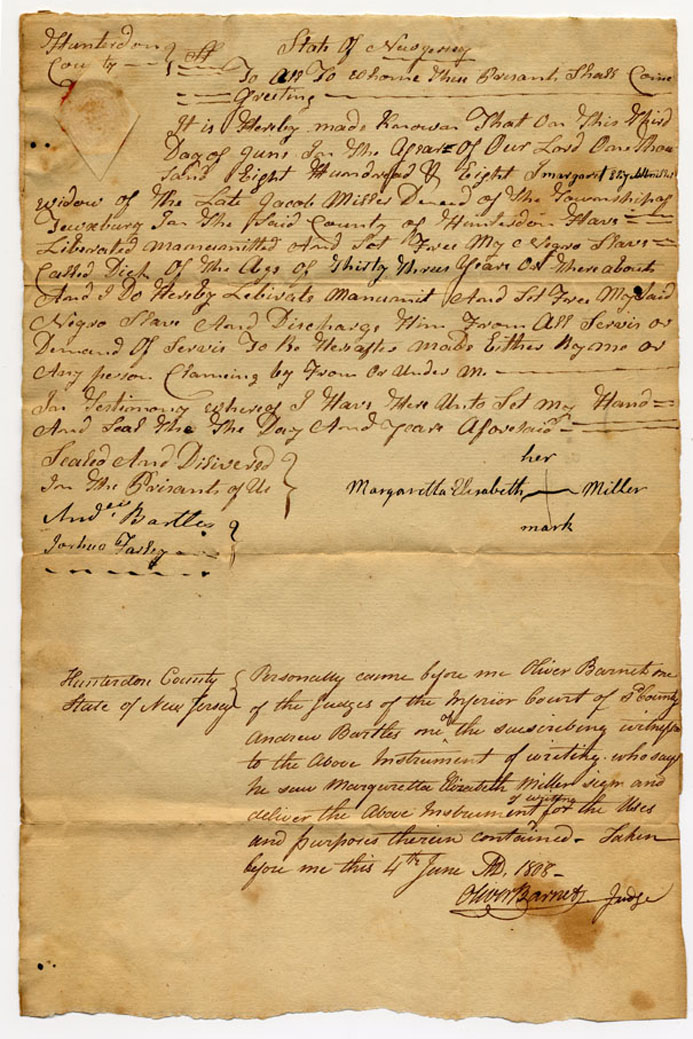 Hunterdon } ss State Of Newjersey
County
To All To Whome These Presants Shall Come
Greeting
It is Hereby made Knowan That On This Third
Day of June In The Year Of Our Lord One Thou
sand Eight Hundread & Eight I margaret Elizabeth miller
widow of The Late Jacob Miller Decead of The Township of
Tewxbury In The Said County of Hunterdon Have
Liberated Manumitted And Set Free My Negro Slave
Called Dick Of The Age of Thirty Three Years Or Thereabouts
And I Do Hereby Leberate Manumit And Set Free My Said
Negro Slave And Discharge Him From All Servis or
Demand Of Servis To Be Hereafter made Either By me or
Any person Claming by From Or Under Me
In Testimony Whereof I Have Here Unto Set My Hand
And Seal The The Day And Yeare Aforesaid
Sealed And Dilivered
In The Prisants of Us
her
Margaritta Elisabeth Miller
mark
And.ew Bartles
Joshua Farley
Hunterdon County
State of New Jersey
Personally came before me Oliver Barnet one
of the Judges of the Inferior Court of sd County
Andrew Bartles one of the suscribing witness
to the Above Instrument of writing who says
he saw Margaretta Elizabeth Miller sign and
deliver the Above Instrument of writing for the Uses
and purposes therein contained - Taken
before me this 4th June AD, 1808 -
Oliver Barnet Judge